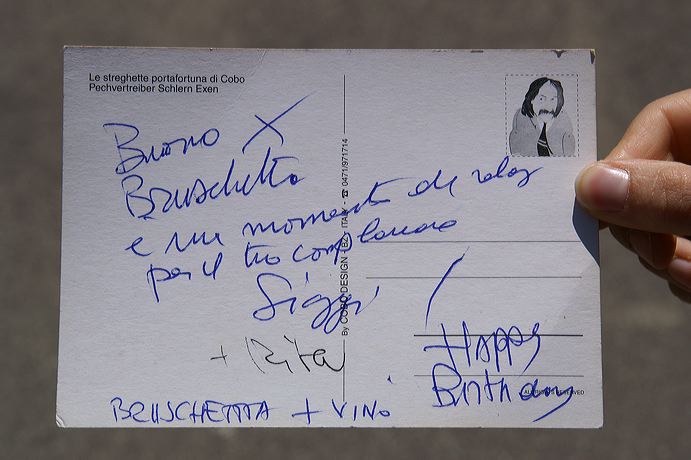 Le streghette portafortuna di Cobo
Pechvertreiber Schlern Exen
Buono X
Bruschetta
e un momento di relax
per il tuo compleanno
Siggi
+ Rita
BRUSCHETTA + VINO
By COBO DESIGN - BZ - ITALY - ☎ 0471/971714
HAPPY
Birthday
ALL RIGHTS RESERVED